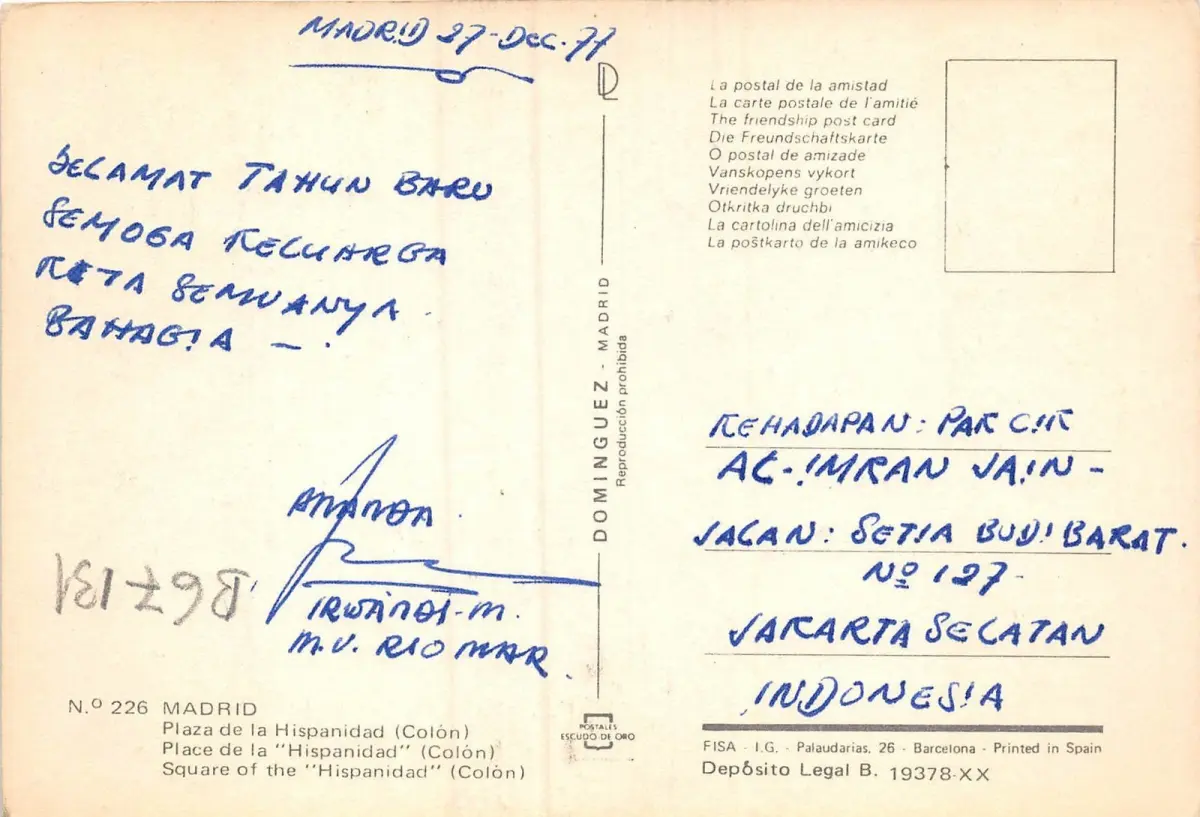 MADRID 27-DEC-77
SELAMAT TAHUN BARU
SEMOGA KELUARGA
KITA SEMUANYA.
BAHAGIA -.
ANANDA.
IRWANDI-M.
M.V. RIO MAR.
B67131
N.º 226 MADRID
Plaza de la Hispanidad (Colón)
Place de la "Hispanidad" (Colón)
Square of the "Hispanidad" (Colón)
DOMINGUEZ - MADRID
Reproducción prohibida
POSTALES
ESCUDO DE ORO
La postal de la amistad
La carte postale de l'amitié
The friendship post card
Die Freundschaftskarte
O postal de amizade
Vanskopens vykort
Vriendelyke groeten
Otkritka druchbi
La cartolina dell'amicizia
La poŝtkarto de la amikeco
KEHADAPAN: PAK CIK
AL-IMRAN JAIN-
JALAN: SETIA BUDI BARAT.
Nº 127-
JAKARTA SELATAN
INDONESIA
FISA - I.G. - Palaudarias, 26 - Barcelona - Printed in Spain
Depósito Legal B. 19378-XX